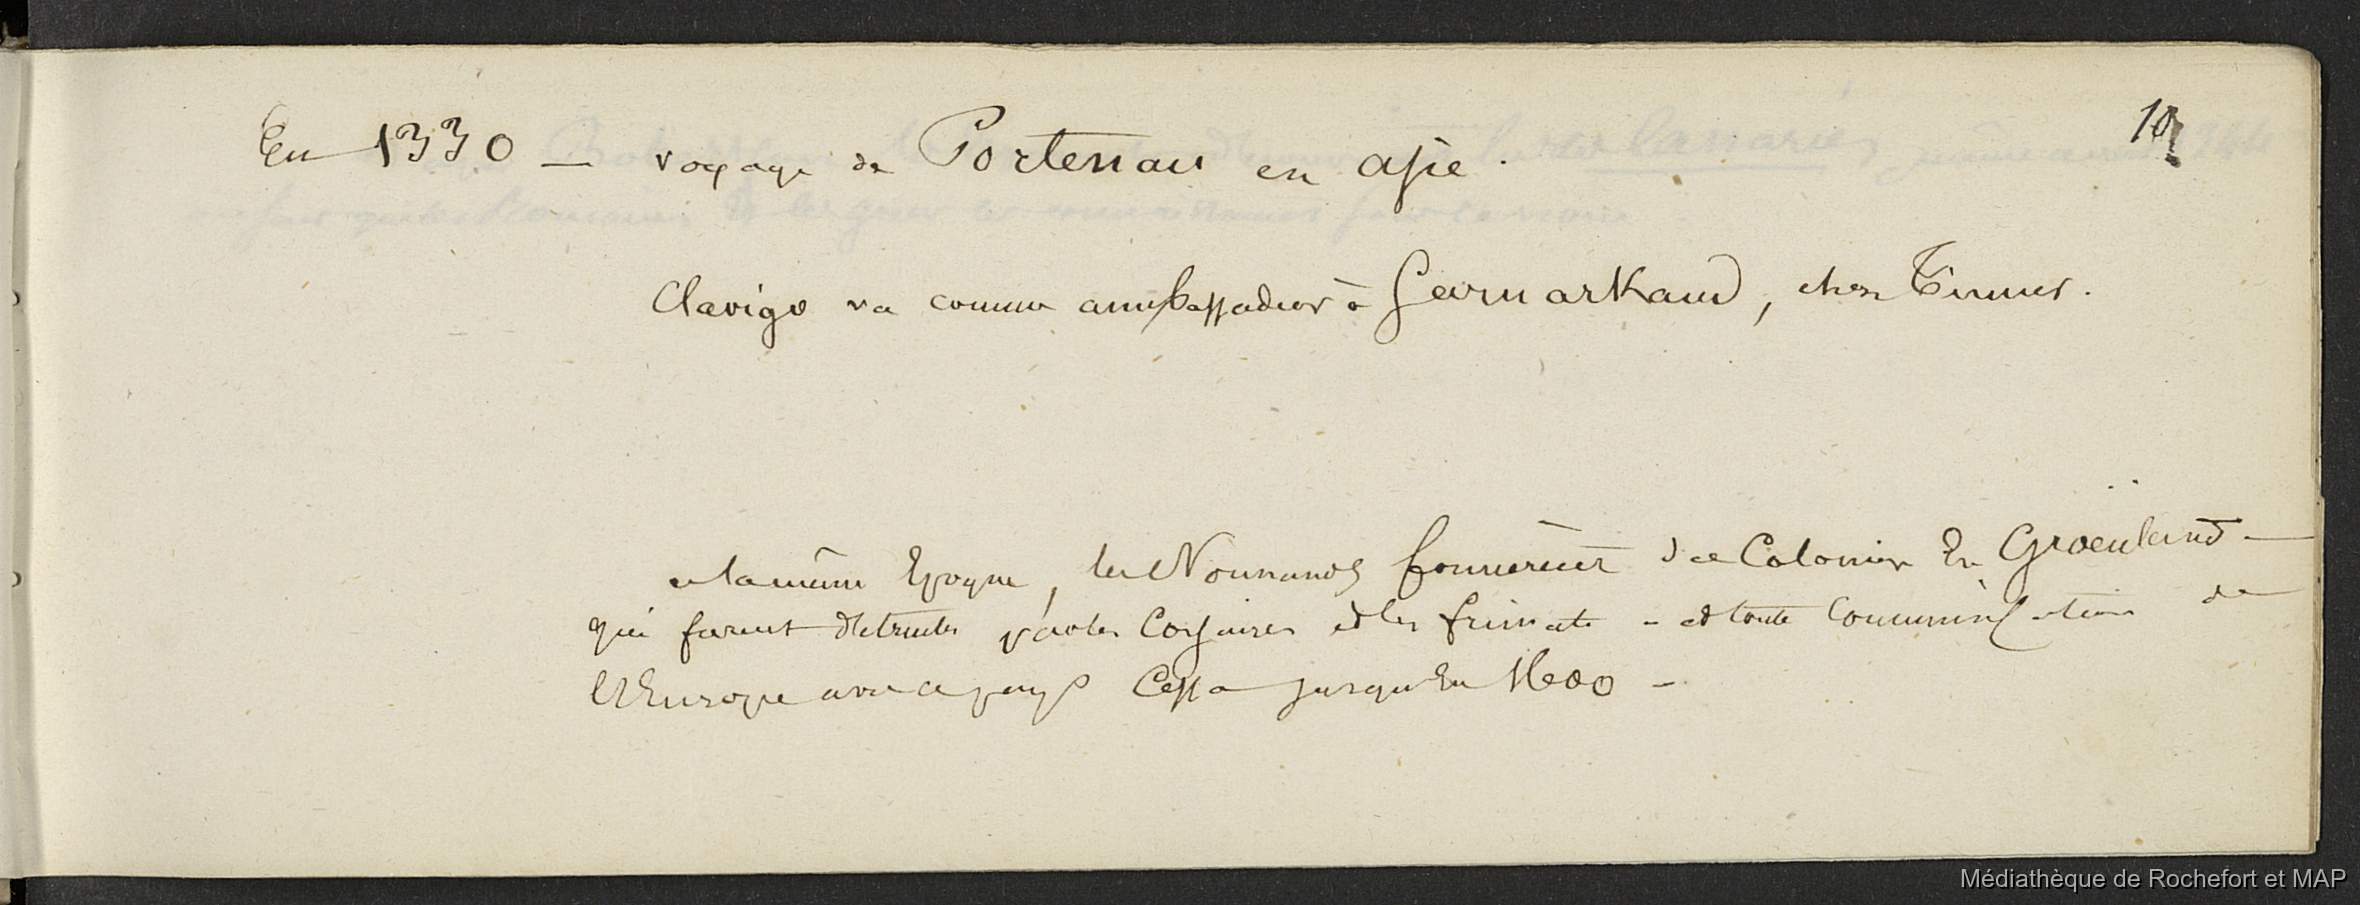 10
En 1330 — voyage de Portenau en asie.
Clavigo va comme ambassadeur à Samarkand, chez Timur.
a la même Epoque, les Normands formèrent des Colonies En Groenland —
qui furent détruites par les Corsaires et les frimats - et toute Communication de
l'Europe avec ce pays Cessa jusqu'En 1600 -
Médiathèque de Rochefort et MAP